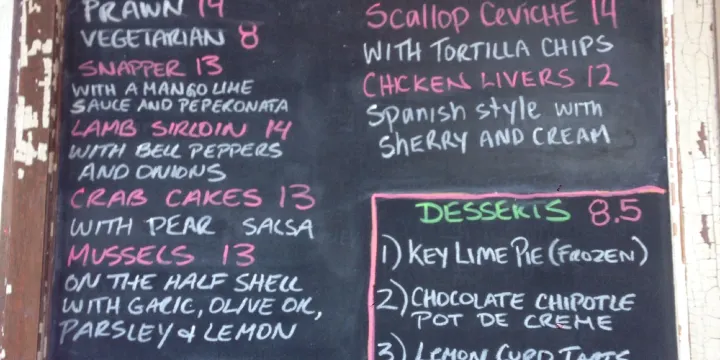 PRAWN 14
VEGETARIAN 8
SNAPPER 13
WITH A MANGO LIME
SAUCE AND PEPERONATA
LAMB SIRLOIN 14
WITH BELL PEPPERS
AND ONIONS
CRAB CAKES 13
WITH PEAR SALSA
MUSSELS 13
ON THE HALF SHELL
WITH GARIC, OLIVE OIL,
PARSLEY & LEMON
Scallop CEVICHE 14
WITH TORTILLA CHIPS
CHICKEN LIVERS 12
Spanish style WITH
SHERRY AND CREAM
DESSERTS 8.5
1) KEY LIME PIE (FROZEN)
2) CHOCOLATE CHIPOTLE
POT DE CREME
3) LEMON CURD TARTS